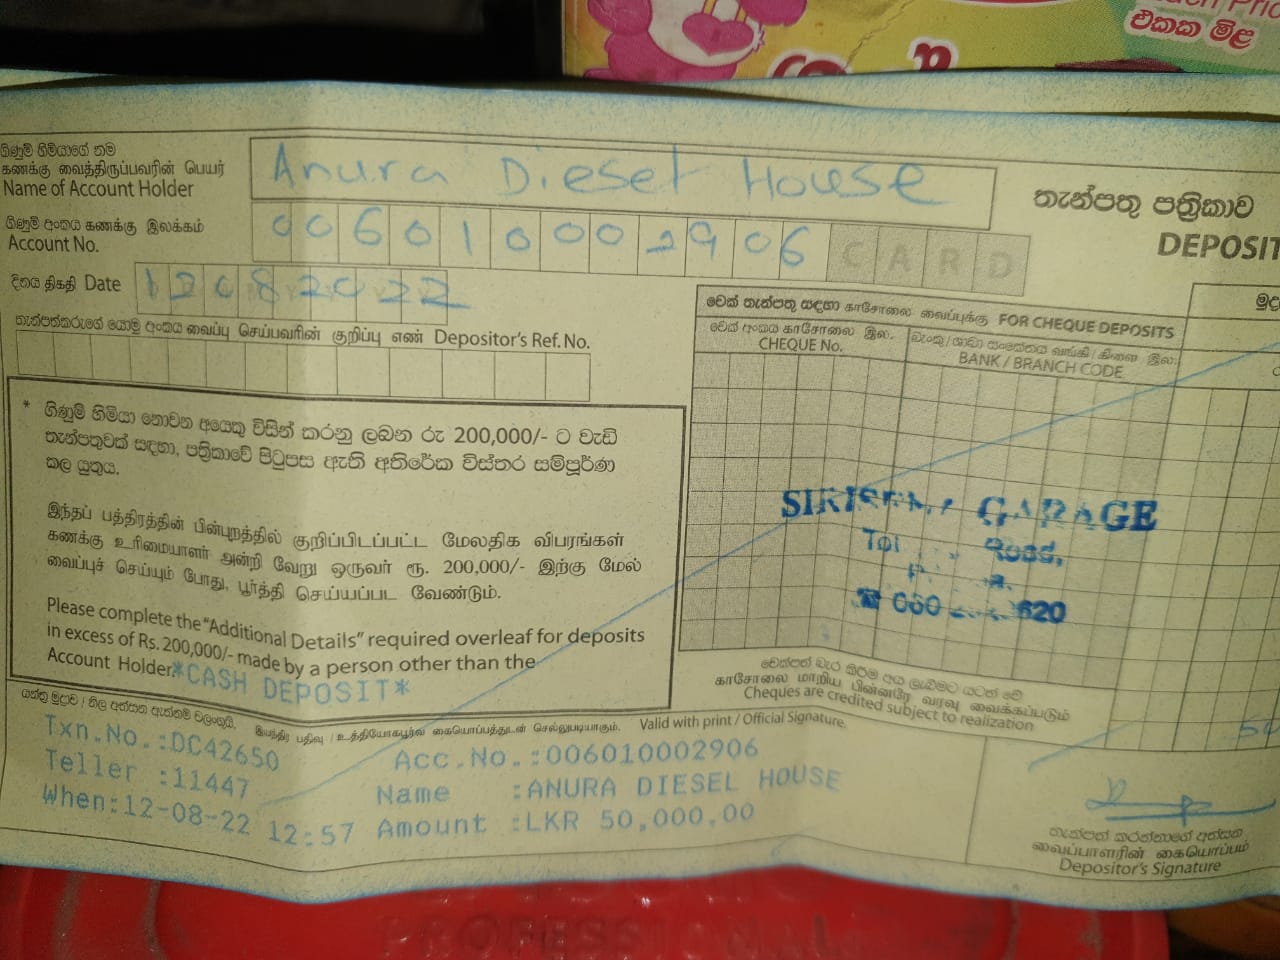 එකක මිල
ගිණුම් හිමියාගේ නම
கணக்கு வைத்திருப்பவரின் பெயர்
Name of Account Holder
Anura Diesel House
තැන්පතු පත්‍රිකාව
DEPOSIT
ගිණුම් අංකය கணக்கு இலக்கம்
Account No.
006010002906 CARD
දිනය திகதி Date
12082022
තැන්පත්කරුගේ යොමු අංකය வைப்பு செய்பவரின் குறிப்பு எண் Depositor's Ref. No.
චෙක් තැන්පතු සඳහා காசோலை வைப்புக்கு FOR CHEQUE DEPOSITS
චෙක් අංකය காசோலை இல.
CHEQUE No.
BANK / BRANCH CODE
* ගිණුම් හිමියා නොවන අයෙකු විසින් කරනු ලබන රු 200,000/- ට වැඩි
තැන්පතුවක් සඳහා, පත්‍රිකාවේ පිටුපස ඇති අතිරේක විස්තර සම්පූර්ණ
කල යුතුය.
இந்தப் பத்திரத்தின் பின்புறத்தில் குறிப்பிடப்பட்ட மேலதிக விபரங்கள்
கணக்கு உரிமையாளர் அன்றி வேறு ஒருவர் ரூ. 200,000/- இற்கு மேல்
வைப்புச் செய்யும் போது, பூர்த்தி செய்யப்பட வேண்டும்.
Please complete the "Additional Details" required overleaf for deposits
in excess of Rs. 200,000/- made by a person other than the
Account Holder.
*CASH DEPOSIT*
GARAGE
620
චෙක්පත් බැර කිරීම අය ලැබීමට යටත් වේ
காசோலை மாறிய பின்னரே வரவு வைக்கப்படும்
Cheques are credited subject to realization
Valid with print / Official Signature.
Txn.No.:DC42650
Acc.No.:006010002906
Teller :11447
Name :ANURA DIESEL HOUSE
When:12-08-22 12:57
Amount :LKR 50,000.00
තැන්පත් කරන්නාගේ අත්සන
வைப்பாளரின் கையொப்பம்
Depositor's Signature
PROFESSIONAL